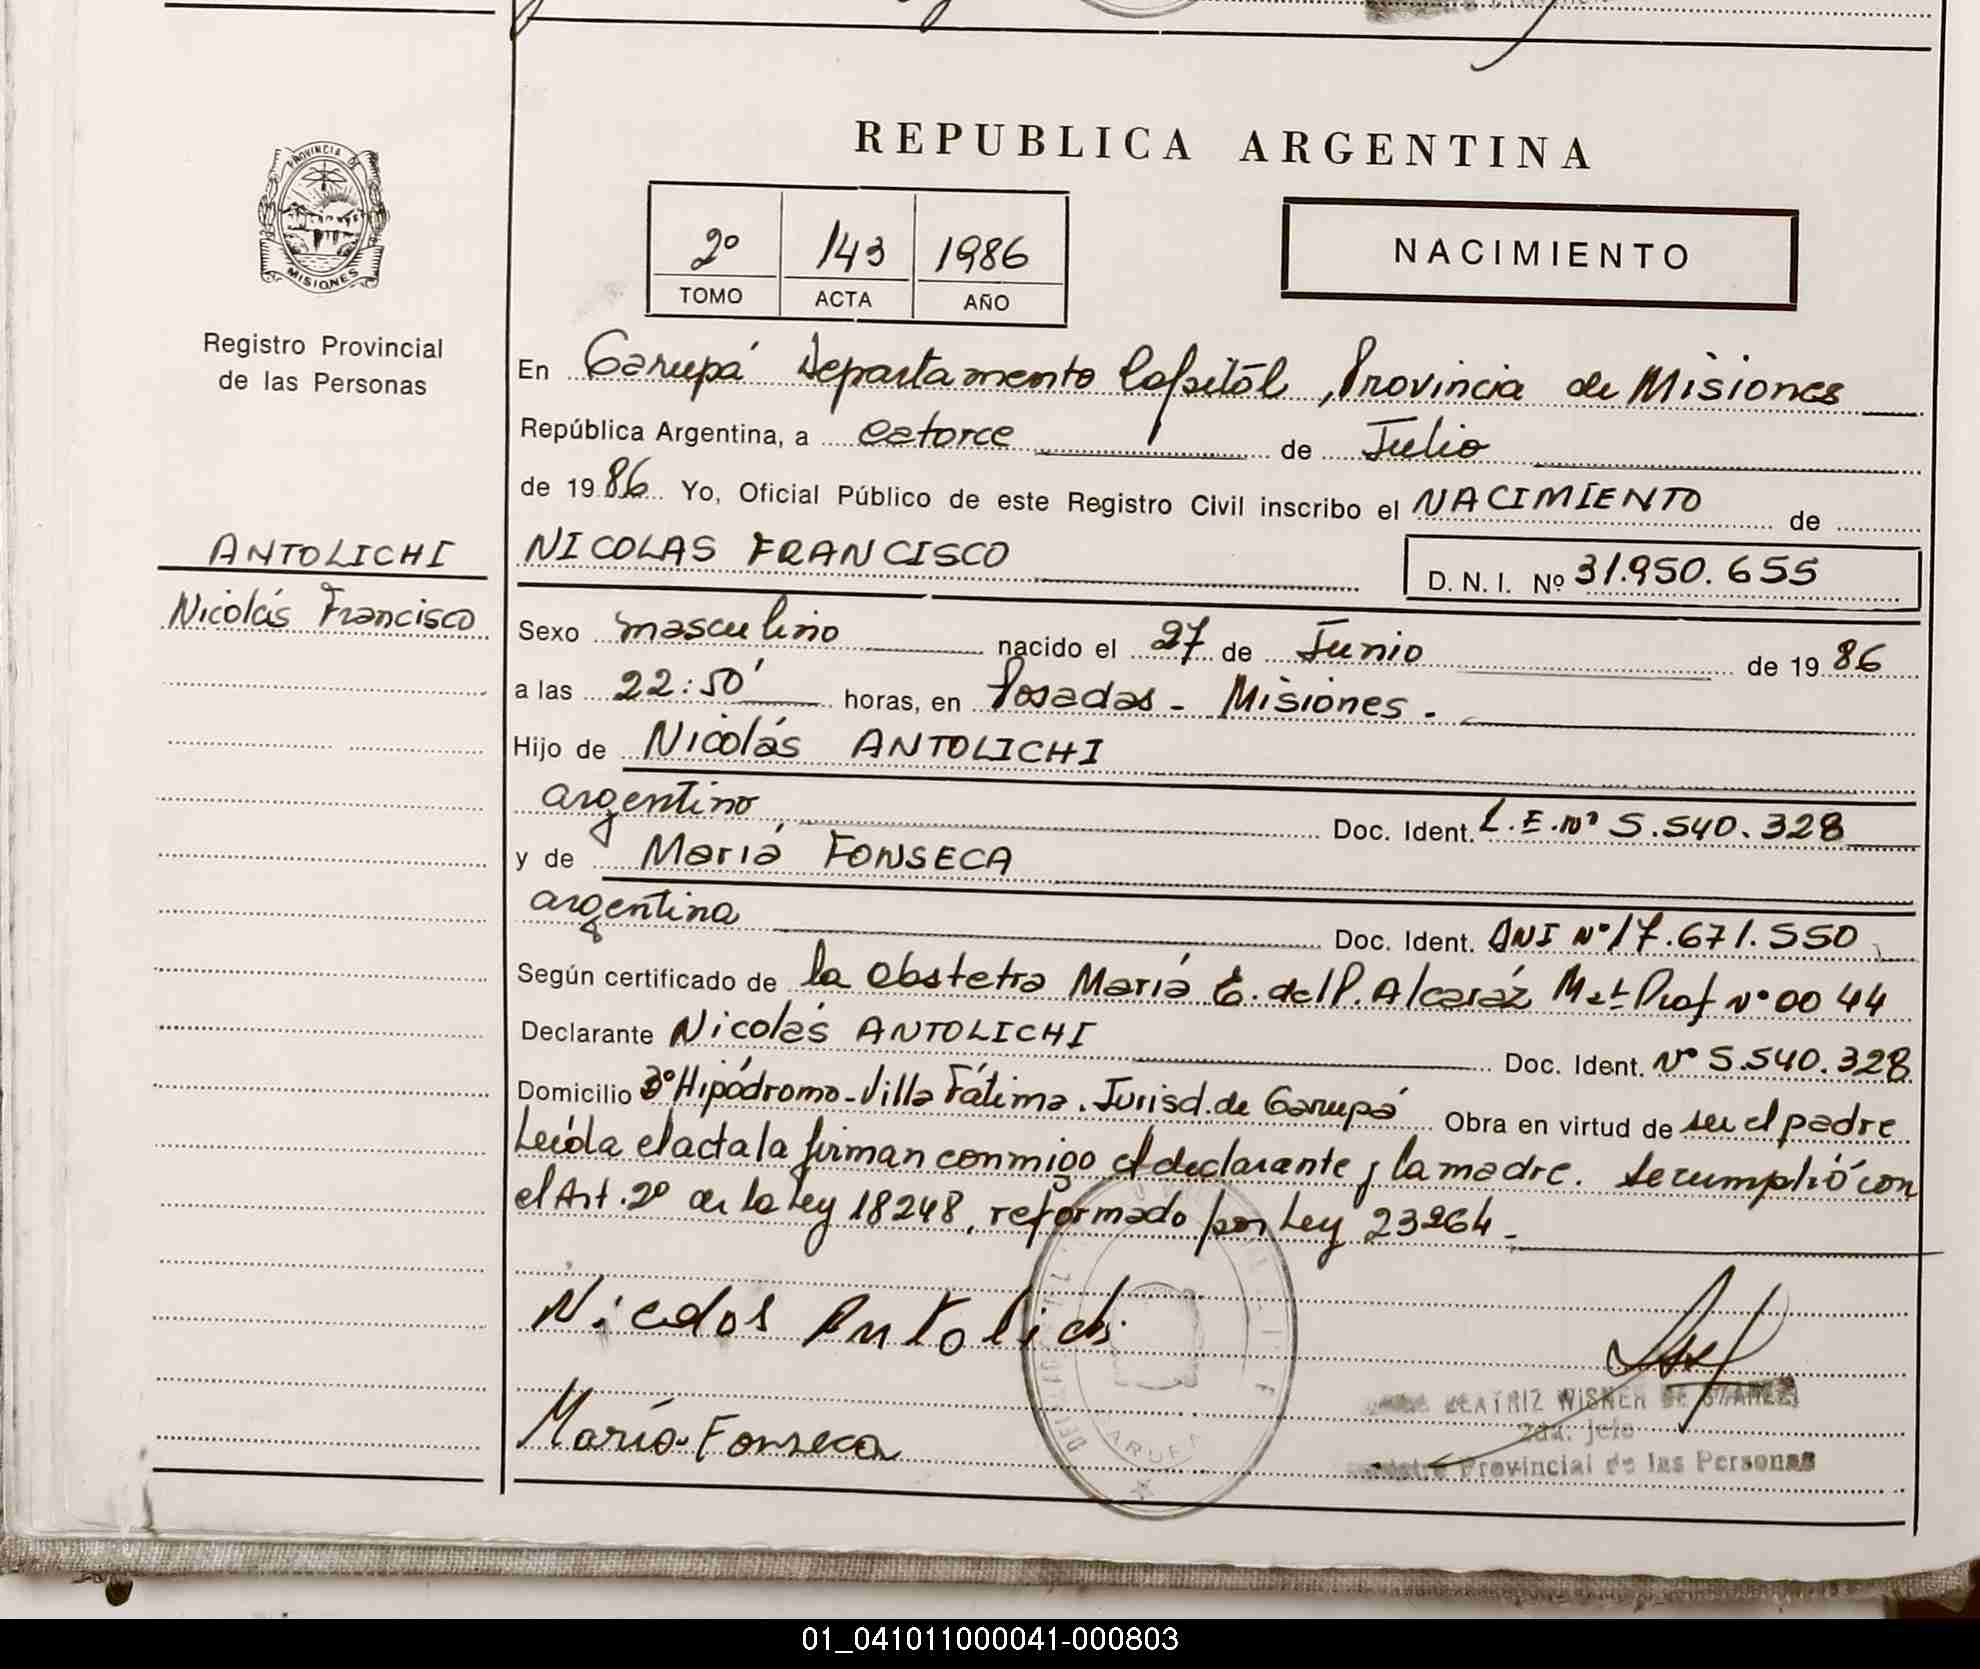 REPUBLICA ARGENTINA
PROVINCIA DE
MISIONES
Registro Provincial
de las Personas
2º 143 1986
TOMO ACTA AÑO
NACIMIENTO
En Garupá Departamento Capitál, Provincia de Misiones
República Argentina, a catorce de Julio
de 1986 Yo, Oficial Público de este Registro Civil inscribo el NACIMIENTO de
ANTOLICHI
Nicolás Francisco
NICOLAS FRANCISCO D. N. I. Nº 31.950.655
Sexo masculino nacido el 27 de Junio de 1986
a las 22:50' horas, en Posadas - Misiones.
Hijo de Nicolás ANTOLICHI
argentino Doc. Ident. L.E.Nº 5.540.328
y de María FONSECA
argentina Doc. Ident. DNI Nº 17.671.550
Según certificado de la obstetra María E. del P. Alcaráz Mat. Prof Nº 0044
Declarante Nicolás ANTOLICHI Doc. Ident. Nº 5.540.328
Domicilio Bº Hipódromo - Villa Fátima. Jurisd. de Garupá Obra en virtud de ser el padre
Leída el acta la firman conmigo el declarante y la madre. Se cumplió con
el Art. 2º de la Ley 18248, reformado por Ley 23264 -
Nicolos Antolichi
María Fonseca
BEATRIZ WISNER DE SUAREZ
2da. Jefe
Registro Provincial de las Personas
01_041011000041-000803